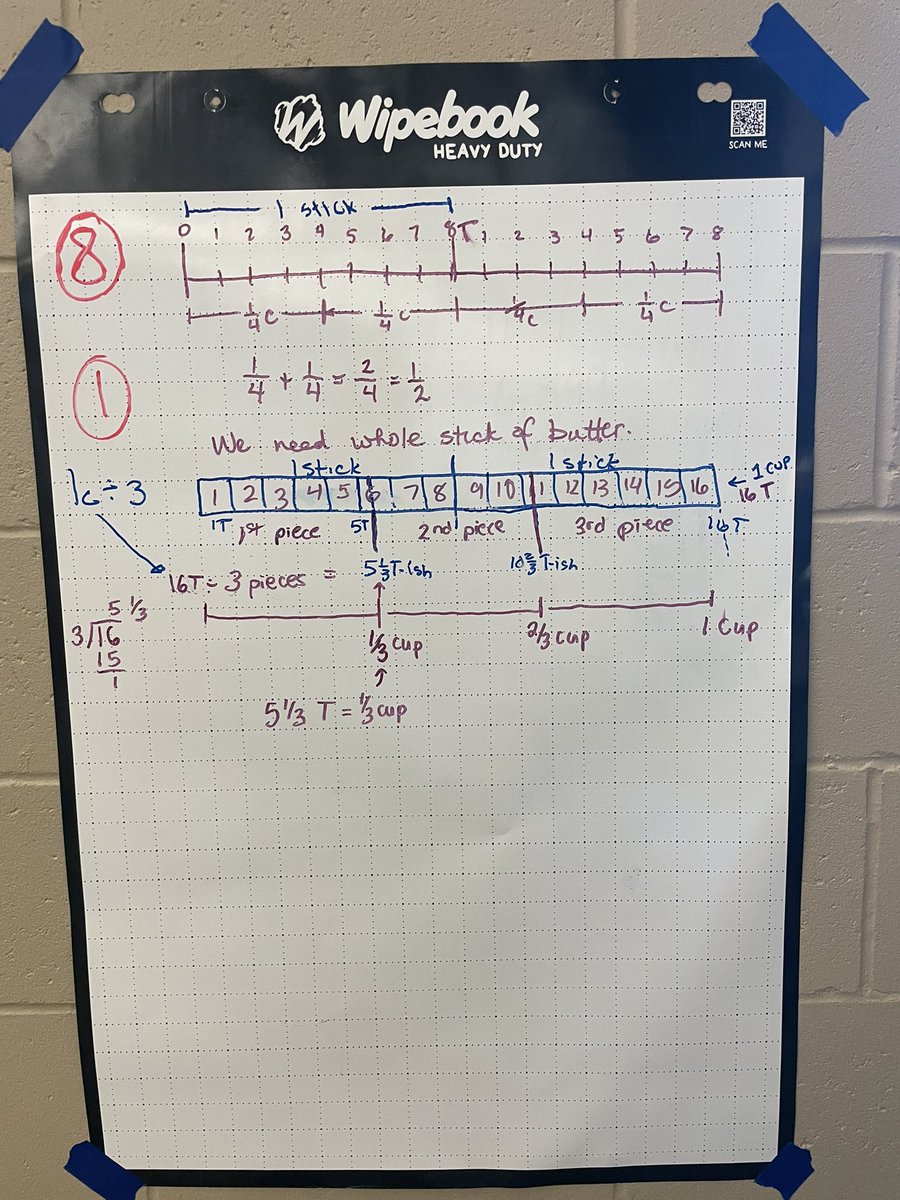 Wipebook
HEAVY DUTY
SCAN ME
1 stick
8
0 1 2 3 4 5 6 7 8T 1 2 3 4 5 6 7 8
1/4 c 1/4 c 1/4 c 1/4 c
1
1/4 + 1/4 = 2/4 = 1/2
We need whole stick of butter.
1 stick 1 stick
1c ÷ 3
1 2 3 4 5 6 7 8 9 10 11 12 13 14 15 16
← 1 cup
16 T
1T 1st piece 5T 2nd piece 3rd piece 16T
16T ÷ 3 pieces = 5 1/3 T-ish 10 2/3 T-ish
5 1/3
3/16
15
1
1/3 cup 2/3 cup 1 Cup
5 1/3 T = 1/3 cup